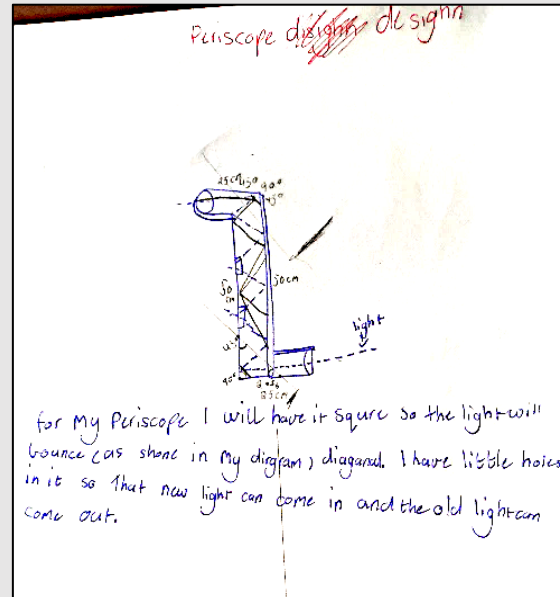 Periscope disighn designn
25cm 45° 90°
45°
50cm
50
cm
light
45°
90°
25cm
for my Periscope I will have it squre so the light will
bounce (as shone in my dirgram) diaganal. I have little holes
in it so that new light can come in and the old light can
come out.